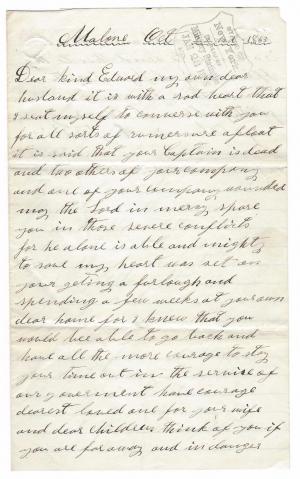 Malone Oct 186
Dear kind Edward my own dear
husband it is with a sad heart that
I seat myself to converse with you
for all sorts of rumers are afloat
it is said that your Captain is dead
and two others of your company
and one of your company wounded
may the Lord in mercy spare
you in those severe conflicts
for he alone is able and mighty
to save my heart was set on
your geting a furlough and
spending a few weeks at your own
dear home for I know that you
would bee able to go back and
have all the more courage to stay
your time out in the service of
our government have courage
dearest loved one for your wife
and dear children think of you if
you are far away and in danger